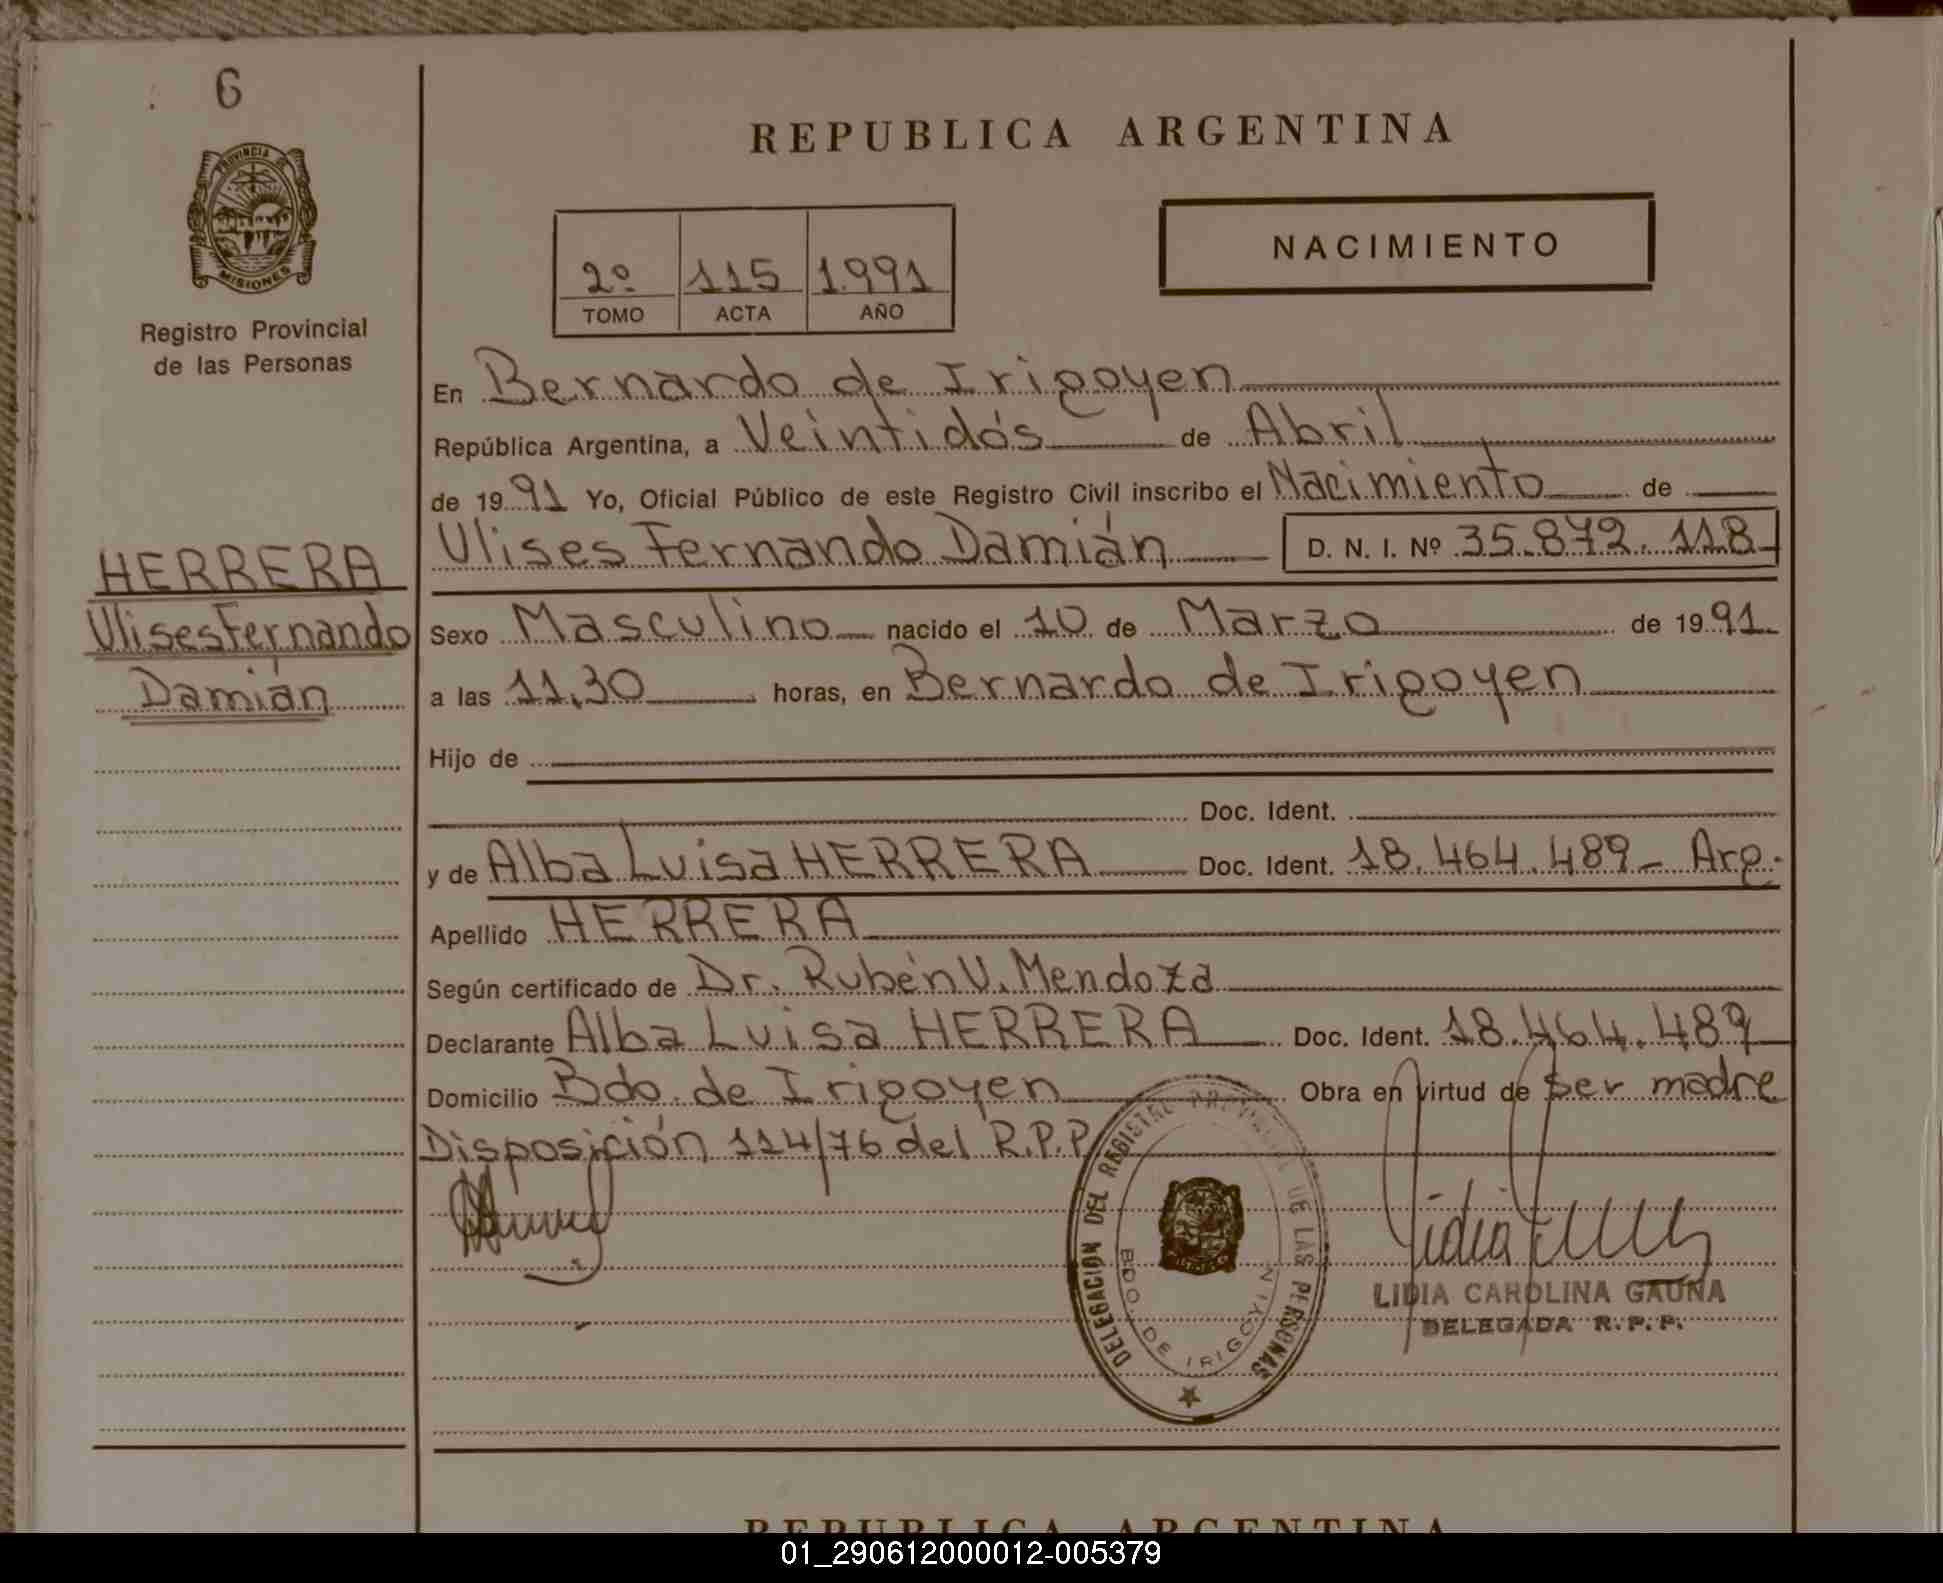 6
PROVINCIA DE
MISIONES
Registro Provincial
de las Personas
HERRERA
Ulises Fernando
Damián
REPUBLICA ARGENTINA
NACIMIENTO
2º 115 1.991
TOMO ACTA AÑO
En Bernardo de Irigoyen
República Argentina, a Veintidós de Abril
de 1991 Yo, Oficial Público de este Registro Civil inscribo el Nacimiento de
Ulises Fernando Damián D. N. I. Nº 35.872.118
Sexo Masculino nacido el 10 de Marzo de 1991.
a las 11,30 horas, en Bernardo de Irigoyen
Hijo de
Doc. Ident.
y de Alba Luisa HERRERA Doc. Ident. 18.464.489- Arg.
Apellido HERRERA
Según certificado de Dr. Rubén V. Mendoza
Declarante Alba Luisa HERRERA Doc. Ident. 18.464.489
Domicilio Bdo. de Irigoyen Obra en virtud de ser madre
Disposición 114/76 del R.P.P
DELEGACION DEL REGISTRO PROVINCIAL DE LAS PERSONAS
BDO. DE IRIGOYIN
LIDIA CAROLINA GAUNA
DELEGADA R.P.P.
REPUBLICA ARGENTINA
01_290612000012-005379